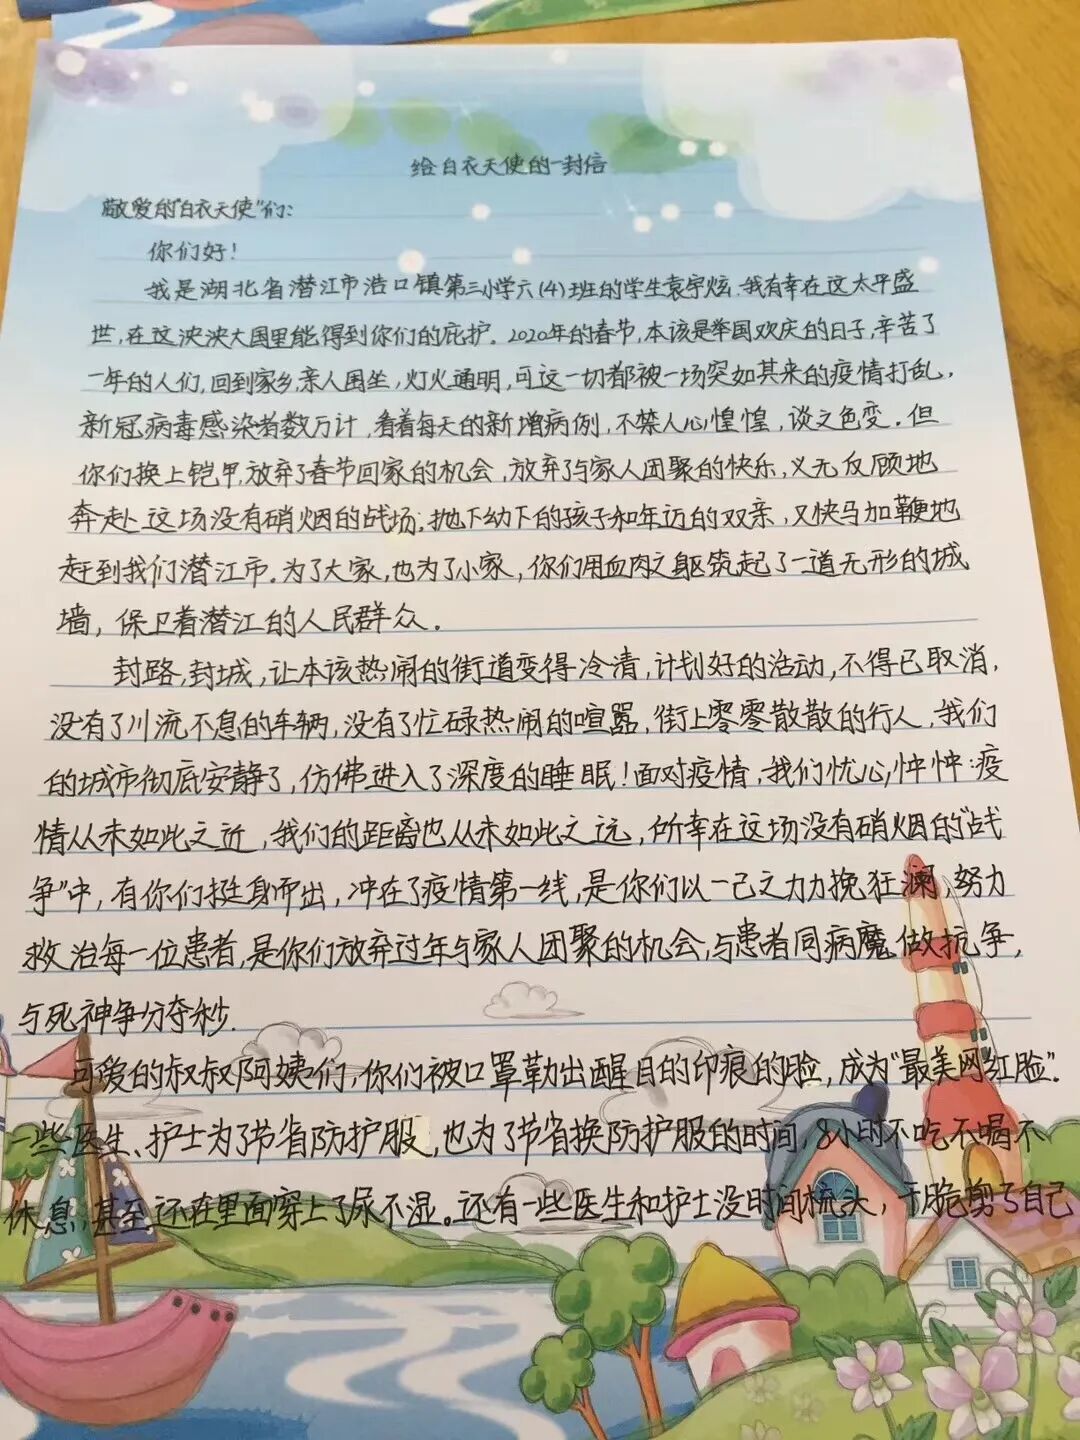 给白衣天使的一封信
敬爱的"白衣天使"们:
你们好!
我是湖北省潜江市浩口镇第三小学六(4)班的学生袁宇炫.我有幸在这太平盛
世,在这泱泱大国里能得到你们的庇护。2020年的春节,本该是举国欢庆的日子,辛苦了
一年的人们,回到家乡,亲人围坐,灯火通明,可这一切都被一场突如其来的疫情打乱,
新冠病毒感染者数万计,看着每天的新增病例,不禁人心惶惶,谈之色变.但
你们换上铠甲,放弃了春节回家的机会,放弃了与家人团聚的快乐,义无反顾地
奔赴这场没有硝烟的战场;抛下幼下的孩子和年迈的双亲,又快马加鞭地
赶到我们潜江市.为了大家,也为了小家,你们用血肉之躯筑起了一道无形的城
墙,保卫着潜江的人民群众。
封路,封城,让本该热闹的街道变得冷清,计划好的活动,不得已取消,
没有了川流不息的车辆,没有了忙碌热闹的喧嚣,街上零零散散的行人,我们
的城市彻底安静了,仿佛进入了深度的睡眠!面对疫情,我们忧心忡忡:疫
情从未如此之近,我们的距离也从未如此之远,所幸在这场没有硝烟的"战
争"中,有你们挺身而出,冲在了疫情第一线,是你们以一己之力力挽狂澜,努力
救治每一位患者,是你们放弃过年与家人团聚的机会,与患者同病魔做抗争,
与死神争分夺秒.
可爱的叔叔阿姨们,你们被口罩勒出醒目的印痕的脸,成为"最美网红脸".
一些医生、护士为了节省防护服,也为了节省换防护服的时间,8小时不吃不喝不
休息,甚至还在里面穿上了尿不湿。还有一些医生和护士没时间梳头,干脆剪了自己